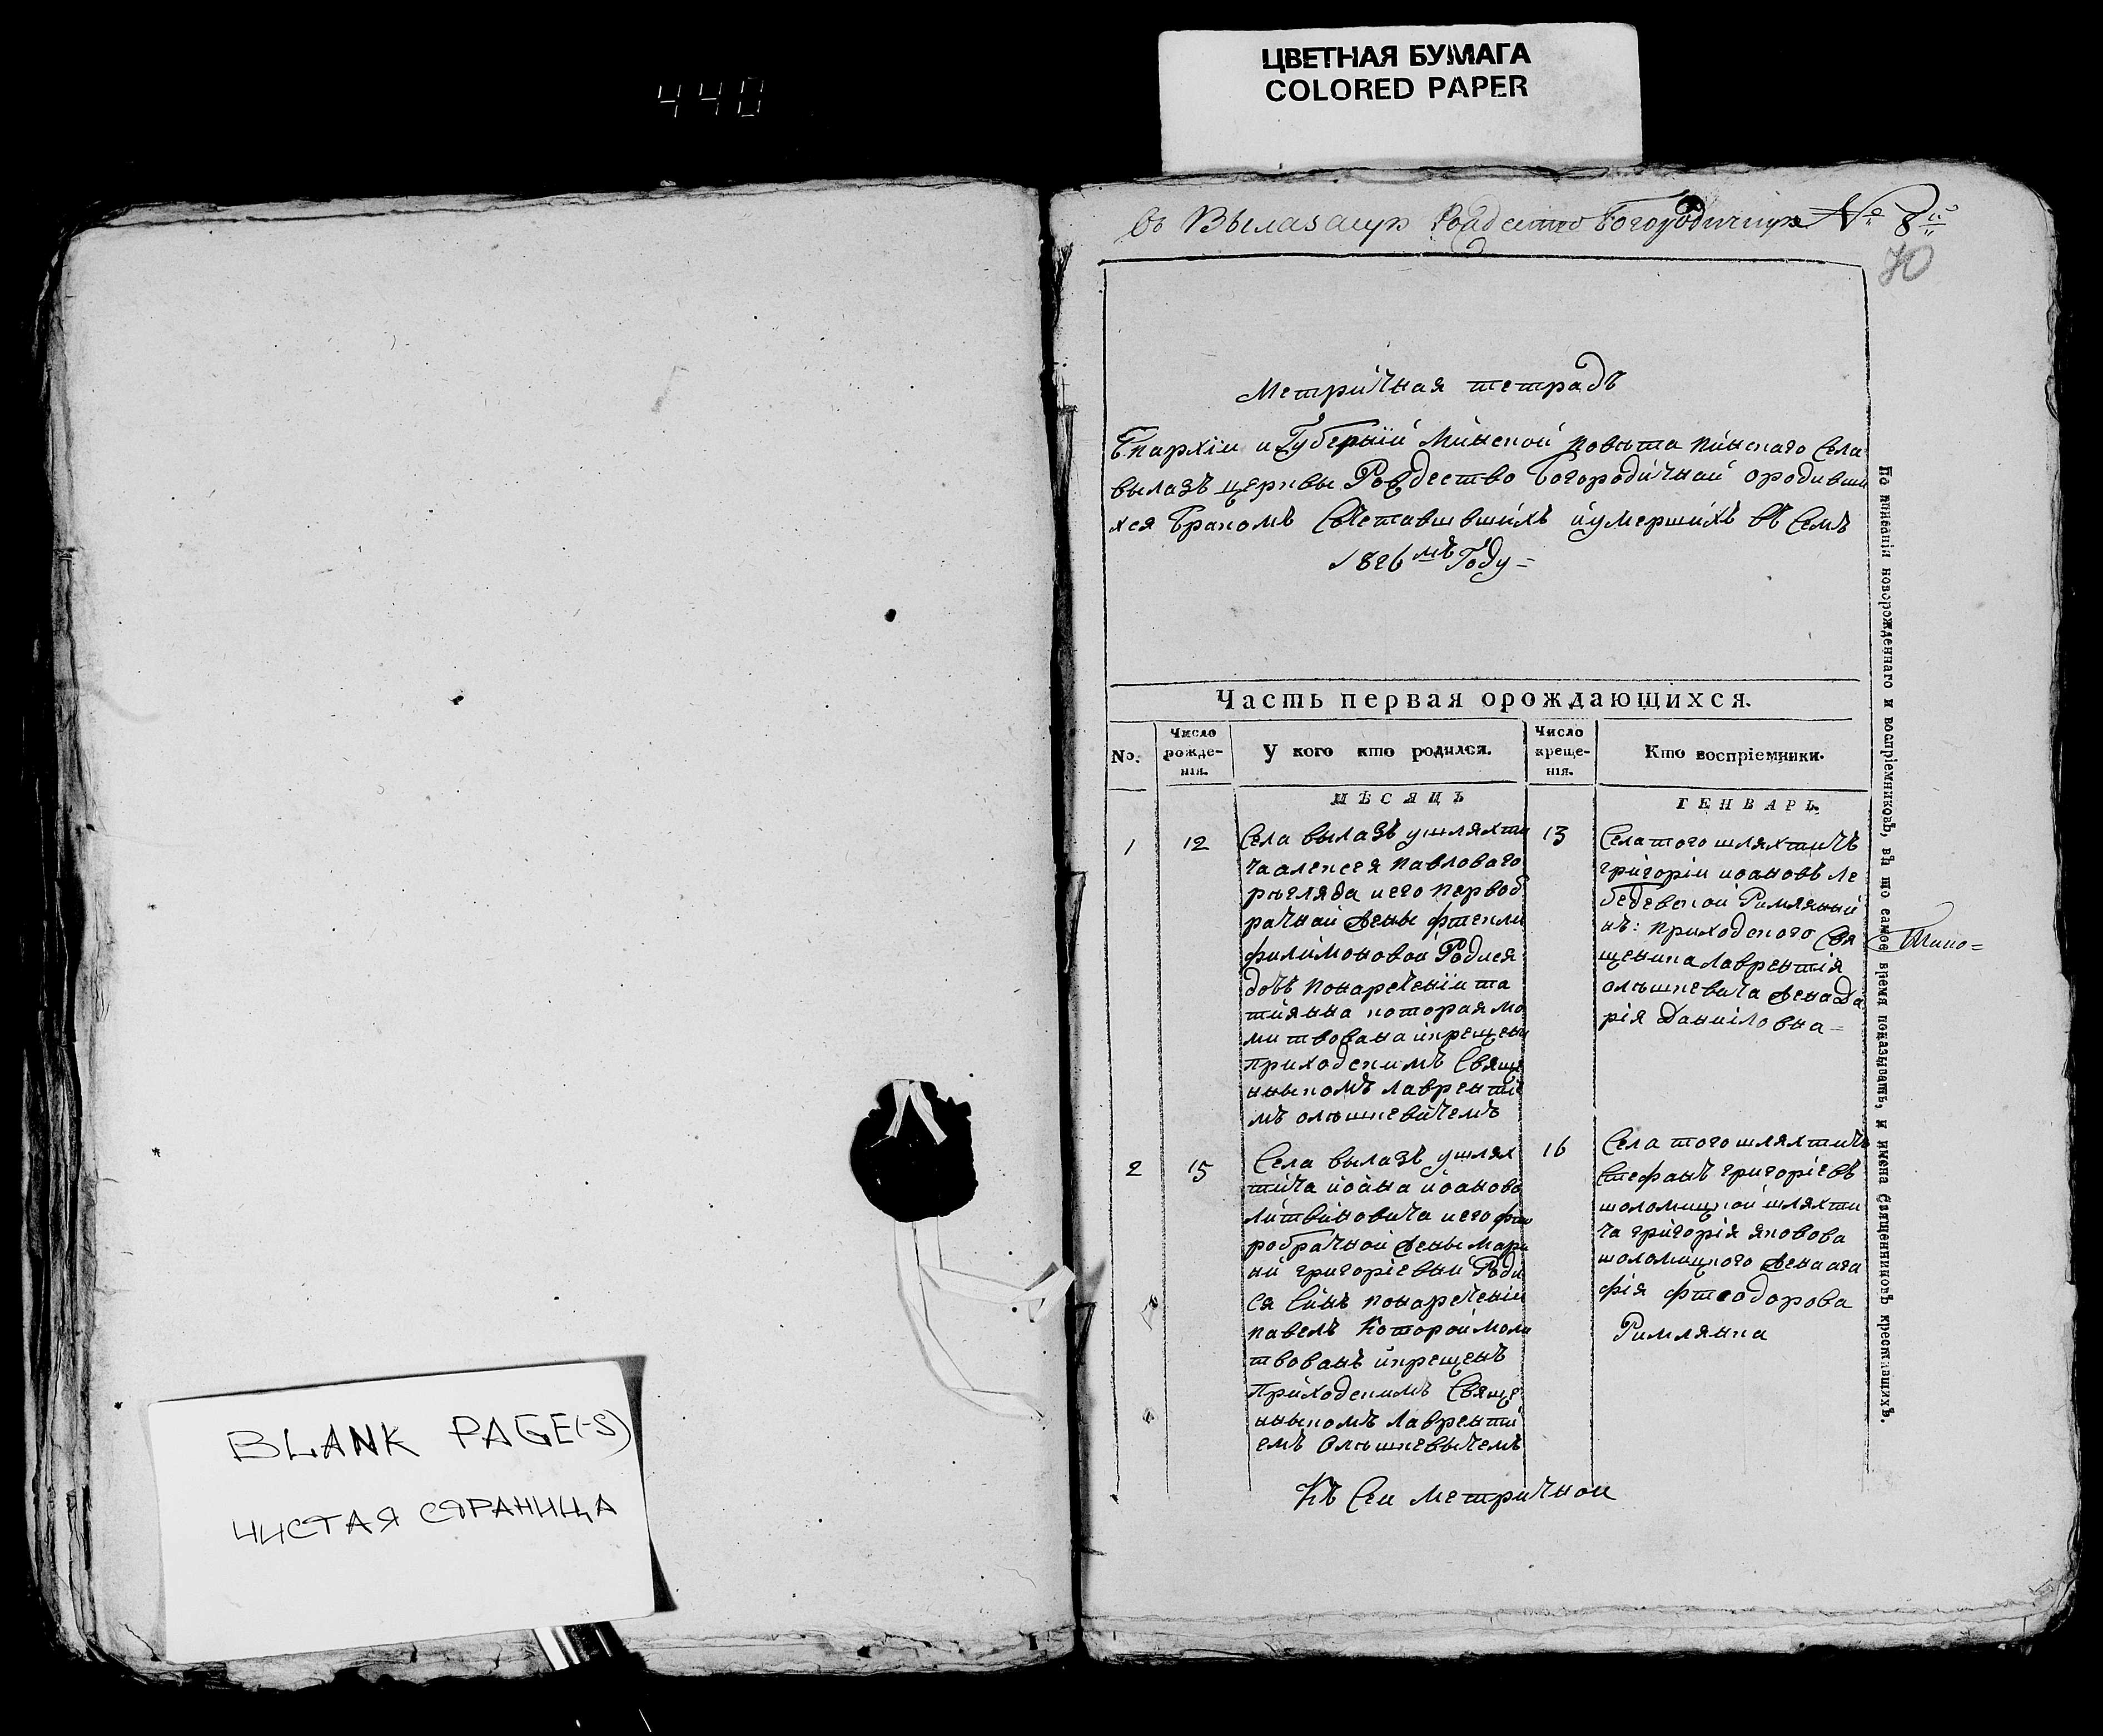 440
ЦВЕТНАЯ БУМАГА
COLORED PAPER
BLANK PAGE(-S)
ЧИСТАЯ СТРАНИЦА
въ Вылазахъ Рождество Богородичную № 8й
70
Метричная тетрадъ
Епархiи и Губернiи Минской повѣта пинскаго Села
вылазъ церквы Рождество Богородичной ородивши
хся бракомъ Съчетавшвшихъ иумершихъ въ Семъ
1826мъ Году =
Часть первая орождающихся.
No.
Число рожде- нiя.
У кого кто родился.
Число креще- нiя.
Кто воспрiемники.
МѢСЯЦЪ
ГЕНВАРЬ.
1
12
Села вылазъ ушляхти
чаалексея павловаго
рыгляда иего первоб
рачной жены фтекли
филимоновой Родися
дочъ понареченiи та
тиянна которая мо
митвована икрещены
приходскимъ Свяще
нныкомъ лавренти
мъ олѣшкевичемъ
13
Села того шляхтичъ
григорiи иоановъ ле
бедевской Римляний
нъ: приходского Свя
щеника лаврентiя
олѣшкевича женада
рiя данiиловна =
2
15
Села вылазъ ушлях
тича иоана иоанова
литвиновича иего фто
робрачной жены мари
ий григорiевни Роди
ся Синъ понареченiи
павелъ которой моли
твованъ икрещенъ
приходскимъ Свяще
нныкомъ лавренти
емъ Олѣшкевычемъ
16
Села того шляхтичъ
Стефанъ григорiевъ
шоломицкой шляхти
ча григорiя яковова
шоломицкого жена ага
фiя фтеодорова
Римлянка
Къ Сеи метричнои
По писанiи новорожденнаго и воспрiемниковъ, въ то самое время показывать, и имена Священниковъ крестящихъ.